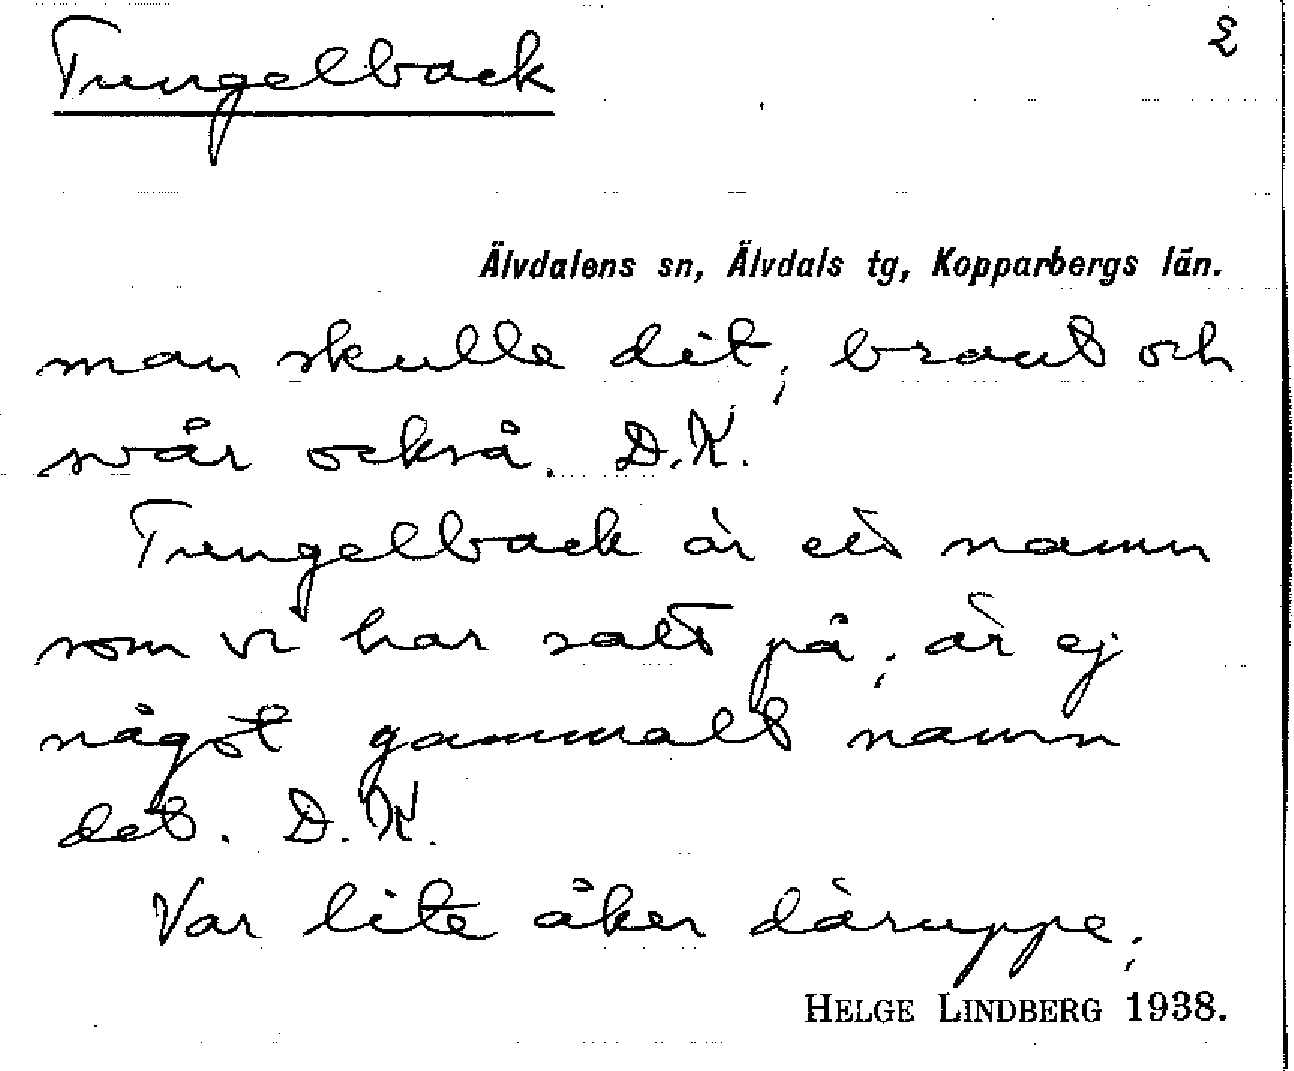 Trungelback 2
Älvdalens sn, Älvdals tg, Kopparbergs län.
man skulle dit; brant och
svår också. D.K.
Trungelback är ett namn
som vi har satt på; är ej
något gammalt namn
det. D.K.
Var lite åker däruppe;
HELGE LINDBERG 1938.